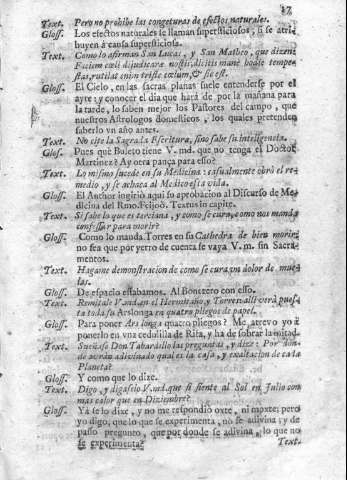 17
Text. Pero no prohibe las congeturas de efectos naturales.
Gloss. Los efectos naturales se llaman supersticiosos, si se atribuyen
buyen à causa supersticiosa.
Text. Como lo afirman San Lucas, y San Matheo, que dizen:
Faciem cœli dijudicare nostis, dicitis manè hodie tempestas,
tas, rutilat enim triste cœlum, & sic est.
Gloss. El Cielo, en las sacras planas suele entenderse por el
ayre; y conocer el dia que harà de por la mañana para
la tarde, lo saben mejor los Pastores del campo, que
nuestros Astrologos domesticos, los quales pretenden
saberlo vn año antes.
Text. No cite la Sagrada Escritura, sino sabe su inteligencia.
Glos. Pues què Buleto tiene V. md. que no tenga el Doctor
Martinez? Ay otra pança para esso?
Text. Lo mismo sucede en su Medicina: casualmente obrò el remedio,
medio, y se achaca al Medico esta vida.
Gloss. El Author ingiriò aqui su aprobacion al Discurso de Medicina
dicina del Rmo. Feijoò. Textus in capite.
Text. Si sabe lo que es terciana, y como se cura, como nos manda
confessar para morir?
Gloss. Como lo manda Torres en su Cathedra de bien morir:
no sea que por yerro de cuenta se vaya V. m. sin Sacramentos.
mentos.
Text. Hagame demonstracion de como se cura vn dolor de muelas.
las.
Gloss. De espacio estabamos. Al Bonetero con esso.
Text. Remitale V. md. an el Hermitaño, y Torres: alli verà puesta
ta toda su Arslonga en quatro pliegos de papel.
Gloss. Para poner Ars longa quatro pliegos? Me atrevo yo à
ponerlo en vna cedulilla de Rifa, y ha de sobrar la mitad.
Text. Sucesso Don Tabardillo las preguntas, y dize: Por donde
de avràn adivinado qual es la casa, y exaltacion de cada
Planeta?
Gloss. Y como que lo dize.
Text. Digo, y digaselo V. md. que si siente al Sol en Julio con
mas calor que en Diziembre?
Gloss. Yà se lo dixe, y no me respondiò oxte, ni moxte; pero
yo digo, que lo que se experimenta, no se adivina; y de
passo pregunto, que por donde se adivina, lo que no
se experimenta?
Text.